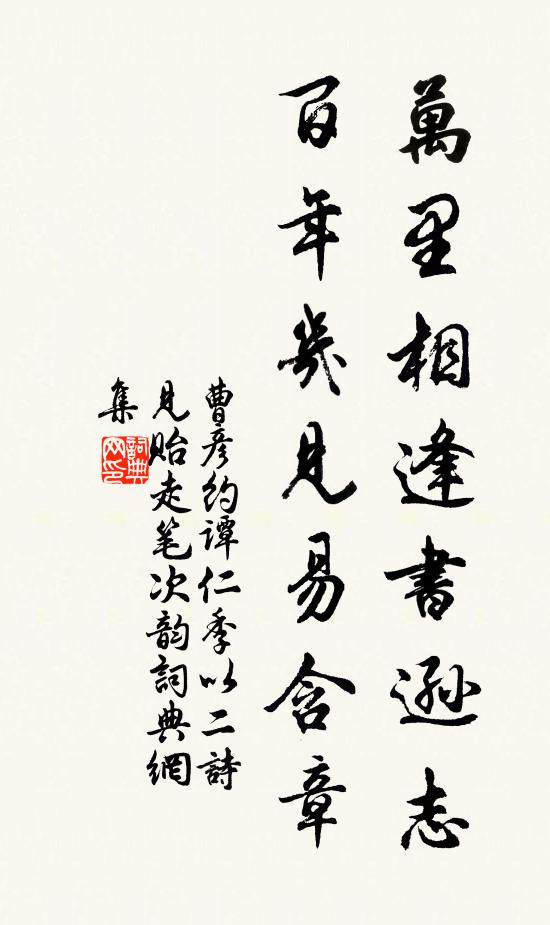 萬里相逢書遜志
百年幾見易含章
曹彦約譚仁季以二詩
見貽走笔次韵詞典網
集
詞典
网印